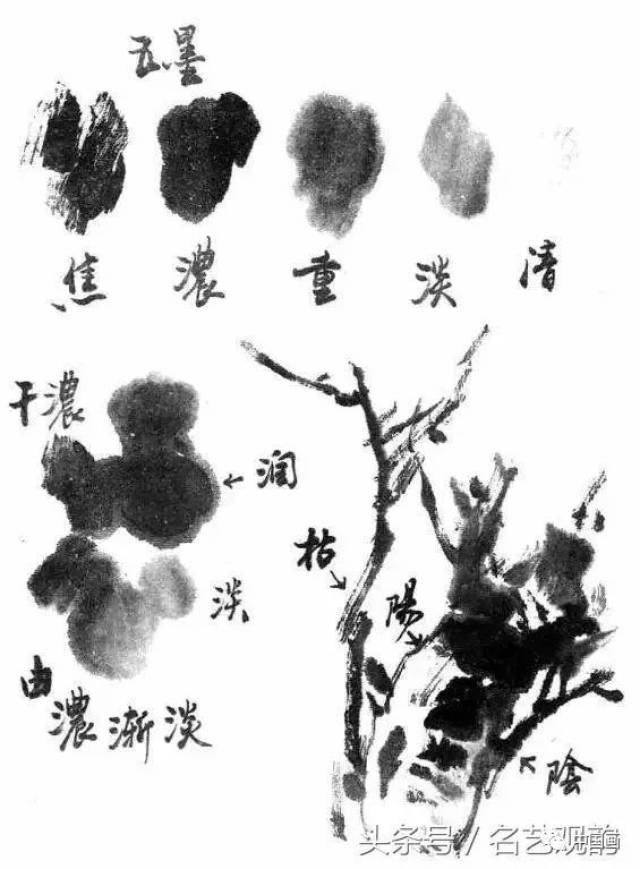 五墨
焦 濃 重 淡 清
干濃
润
枯
陽
淡
由濃渐淡
陰
头条号 / 名艺观韵